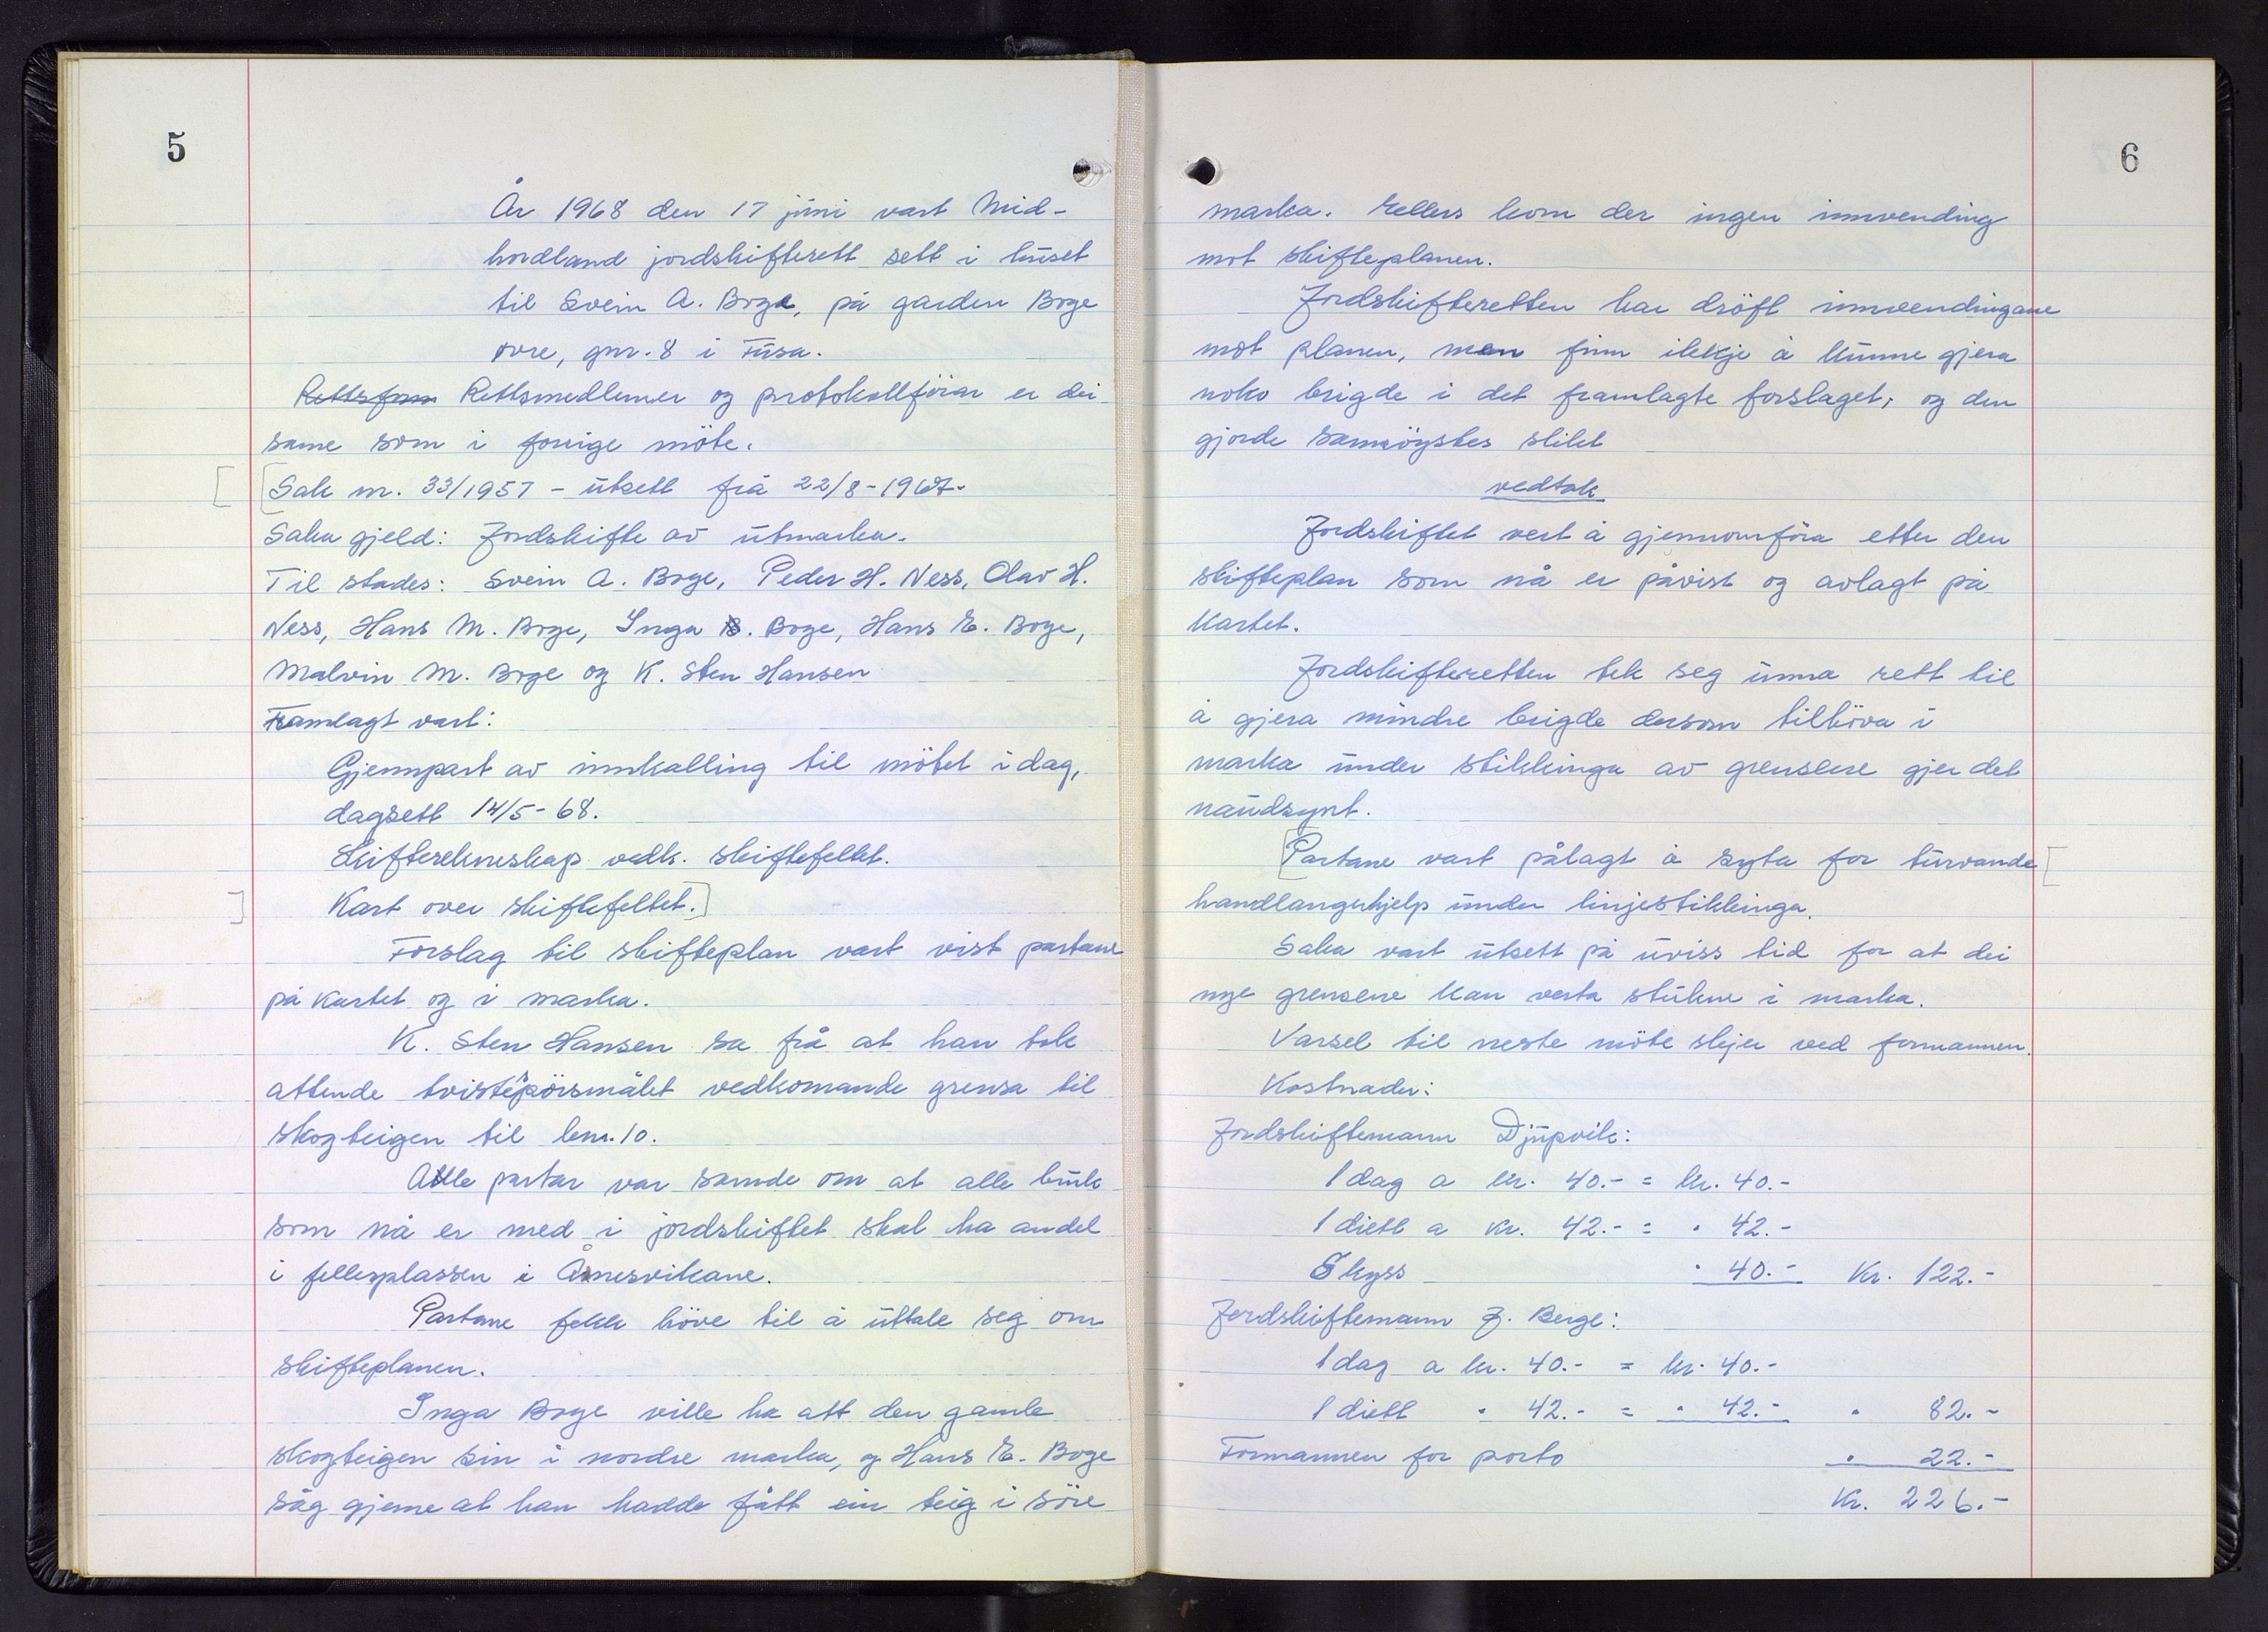 5
År 1968 den 17 juni vart Mid-
hordland jordskifterett sett i huset
til Svein A. Boge, på garden Boge
øvre, gnr. 8 i Fusa.
Rettsfom Rettsmedlemer og protokollförar er dei
same som i forrige möte.
Sak nr. 33/1957 - utsett frå 22/8-1967.
Saka gjeld: Jordskifte av utmarka.
Til stades: Svein A. Boge, Peder H. Ness, Olav H.
Ness, Hans M. Boge, Inga B. Boge, Hans E. Boge,
Malvin M. Boge og K. Sten Hansen
Framlagt vart:
Gjennpart av innkalling til mötet i dag,
dagsett 14/5-68.
Skifterekneskap vedk. skiftefeltet.
Kart over skiftefeltet.
Forslag til skifteplan vart vist partane
på kartet og i marka.
K. Sten Hansen sa frå at han tok
attende tvistespörsmålet vedkomande grensa til
skogteigen til bnr. 10.
Alle partar var samde om at alle bruk
som nå er med i jordskiftet skal ha andel
i fellesplassen i Åmesvikane.
Partane fekk höve til å uttale seg om
skifteplanen.
Inga Boge ville ha att den gamle
skogteigen sin i nordre marka, og Hans E. Boge
såg gjerne at han hadde fått ein teig i söre
6
marka. Ellers kom der ingen innvending
mot skifteplanen.
Jordskifteretten har dröft innvendingane
mot planen, men finn ikkje å kunne gjera
noko brigde i det framlagte forslaget, og den
gjorde samröystes slikt
vedtak
Jordskiftet vert å gjennomföra etter den
skifteplan som nå er påvist og avlagt på
kartet.
Jordskifteretten tek seg unna rett til
å gjera mindre brigde dersom tilhöva i
marka under stikkinga av grensene gjer det
naudsynt.
Partane vart pålagt å syta for turvande
handlangerhjelp under linjestikkinga.
Saka vart utsett på uviss tid for at dei
nye grensene kan verta stukne i marka.
Varsel til neste möte skjer ved formannen.
Kostnader:
Jordskiftemann Djupvik:
1 dag a kr. 40.- = kr. 40.-
1 diett a kr. 42.- = " 42.-
Skyss " 40.- Kr. 122.-
Jordskiftemann J. Berge:
1 dag a kr. 40.- = kr. 40.-
1 diett " 42.- = " 42.- " 82.-
Formannen for porto " 22.-
Kr. 226.-